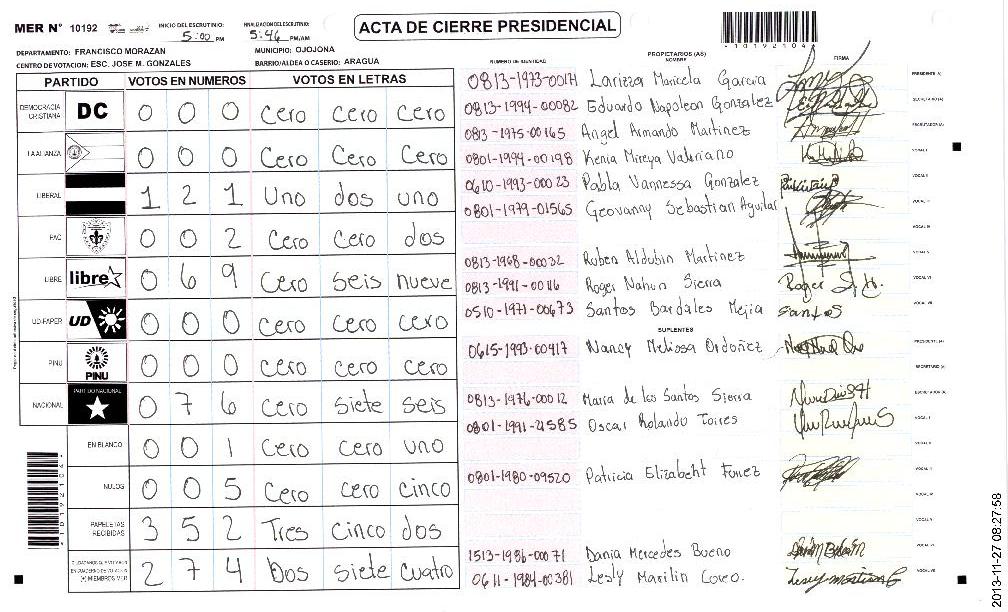 MER N° 10192
INICIO DEL ESCRUTINIO: 5:00 PM
FINALIZACION DEL ESCRUTINIO: 5:46 PM/AM
ACTA DE CIERRE PRESIDENCIAL
10192104
DEPARTAMENTO: FRANCISCO MORAZAN
MUNICIPIO: OJOJONA
CENTRO DE VOTACION: ESC. JOSE M. GONZALES
BARRIO/ALDEA O CASERIO: ARAGUA
PARTIDO VOTOS EN NUMEROS VOTOS EN LETRAS
DEMOCRACIA CRISTIANA DC 0 0 0 Cero Cero Cero
LA ALIANZA 0 0 0 Cero Cero Cero
LIBERAL 1 2 1 Uno dos uno
PAC 0 0 2 Cero Cero dos
LIBRE libre 0 6 9 Cero seis nueve
UD-FAPER UD 0 0 0 Cero cero cero
PINU PINU 0 0 0 Cero cero cero
NACIONAL PARTIDO NACIONAL 0 7 6 Cero siete seis
EN BLANCO 0 0 1 Cero Cero uno
NULOS 0 0 5 Cero cero cinco
PAPELETAS RECIBIDAS 3 5 2 Tres Cinco dos
2 7 4 Dos siete cuatro
NUMERO DE IDENTIDAD PROPIETARIOS (AS) NOMBRE FIRMA
0813-1973-00171 Larizza Maricela Garcia PRESIDENTE (A)
0813-1994-00082 Eduardo Napoleon Gonzalez SECRETARIO (A)
0813-1975-00165 Angel Armando Martinez ESCRUTADOR (A)
0801-1994-00198 Kenia Mireya Valeriano VOCAL I
0610-1993-00023 Pabla Vannessa Gonzalez VOCAL II
0801-1979-01565 Geovanny Sebastian Aguilar VOCAL III
VOCAL IV
0813-1968-00032 Ruben Aldubin Martinez VOCAL V
0813-1991-00116 Roger Nahun Sierra VOCAL VI
0510-1971-00673 Santos Bardales Mejia Santos VOCAL VII
SUPLENTES
0615-1993-00417 Nancy Melissa Ordoñez PRESIDENTE (A)
SECRETARIO (A)
0813-1976-00012 Maria de los Santos Sierra ESCRUTADOR (A)
0801-1991-21585 Oscar Rolando Torres VOCAL I
VOCAL II
0801-1980-09520 Patricia Elizabeht Funez VOCAL III
VOCAL IV
VOCAL V
1513-1986-00071 Dania Mercedes Bueno VOCAL VI
0611-1984-00381 Lesly Marilin Coreo. VOCAL VII
2013-11-27 08:27:58